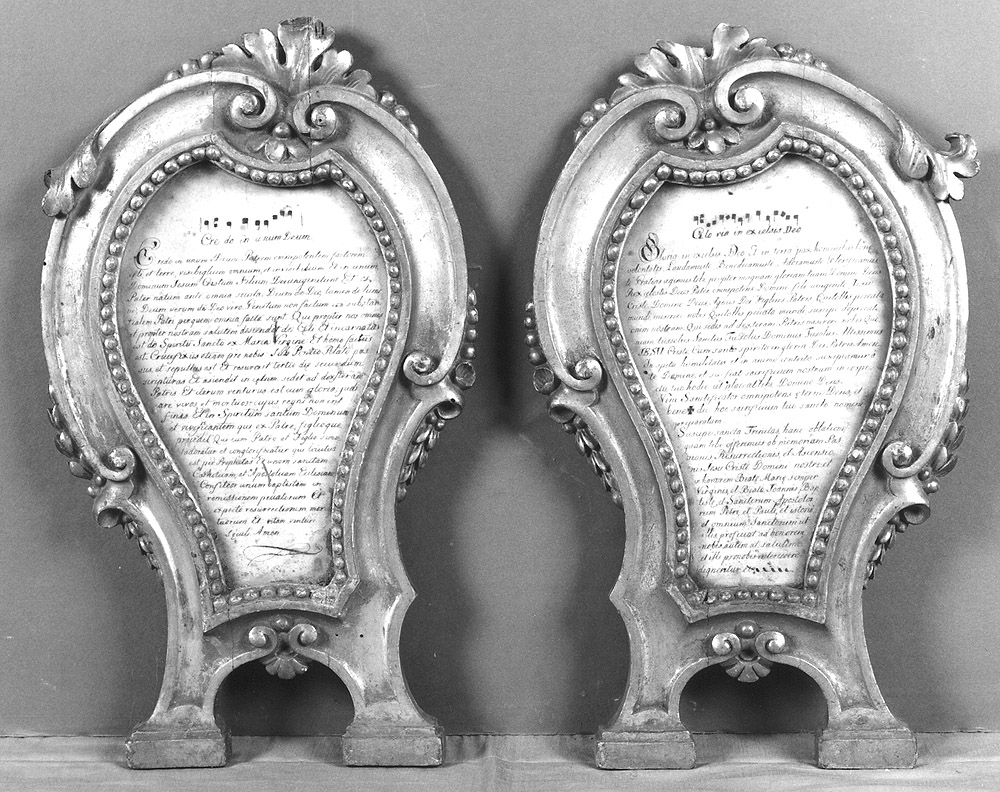 Cre do in unum Deum
Credo in unum Deum Patrem omnipotentem factorem
celi et terre, visibilium omnium, et invisibilium Et in unum
Dominum Jesum Cristum Filium Dei unigenitum Et ex
Patre natum ante omnia secula Deum de Deo, lumen de lumine
Deum verum de Deo vero Genitum non factum
Patri per quem omnia facta sunt Qui propter nos
et propter nostram salutem descendit de Celis Et incarnatus
est de Spiritu Sancto ex Maria Virgine Et homo factus
est Crucifixus etiam pro nobis sub Pontio Pilato pas
sus et sepultus est Et resurexit tertia die secundum
scripturas Et asendit in celum sidet ad dexteram
Patris Et iterum venturus est cum gloria, judi
care vivos et mortuos: cujus regni non erit
finis Et in Spiritum santum Dominum
et vivificantem qui ex Patre, filioque
procedit Qui cum Patre et Filio simul
adoratur et conglorificatur qui locutus
est per Prophetas Et unam sanctam
Catholicam et Apostolicam Eclesiam
Confiteor unum baptisma in
remissionem peccatorum Et
expecto resurrectionem mor
tuorum Et vitam venturi
seculi Amen
Glo ria in excelsis Deo
Gloria in excelsis Deo Et in terra pax hominibus bone
voluntatis Laudamuste Benedicamuste Adoramuste Glorificamus
te Gratias agimus tibi propter magnam gloriam tuam Domine Deus
Rex celestis Deus Pater omnipotens Domine fili unigenite Jesu
Criste Domine Deus Agnus Dei Filius Patris Qui tollis peccata
mundi miserere nobis Qui tollis peccata mundi suscipe deprecati
onem nostram Qui sedes ad dexteram Patris miserere nobis Quo
niam tu solus Santus Tu solus Dominus Tu solus Altissimus
JESU Criste Cum santo spiritu in gloria Dei Patris Amen
spiritu humilitatis et in animo contrito suscipiamur a
te Domine et sic fiat sacrificium nostrum in conspe
ctu tuo hodie ut placeat tibi Domine Deus
Veni Santificator omnipotens eterne Deus, et
bene✠dic hoc sacrificium tuo santo nomini
preparatum
Suscipe sancta Trinitas hanc oblationem
quam tibi offerimus ob memoriam Pas
sionis Resurrectionis, et Ascensio
nis Jesu Cristi Domini nostri et
in honorem Beate Marie semper
Virginis, et Beati Joannis Bap
tiste, et Sanctorum Apostolo
rum Petri, et Pauli, et istorum
et omnium Sanctorum ut
illis proficiat ad honorem
nobis autem at salutem
et illi pro nobis intercedere
dignentur